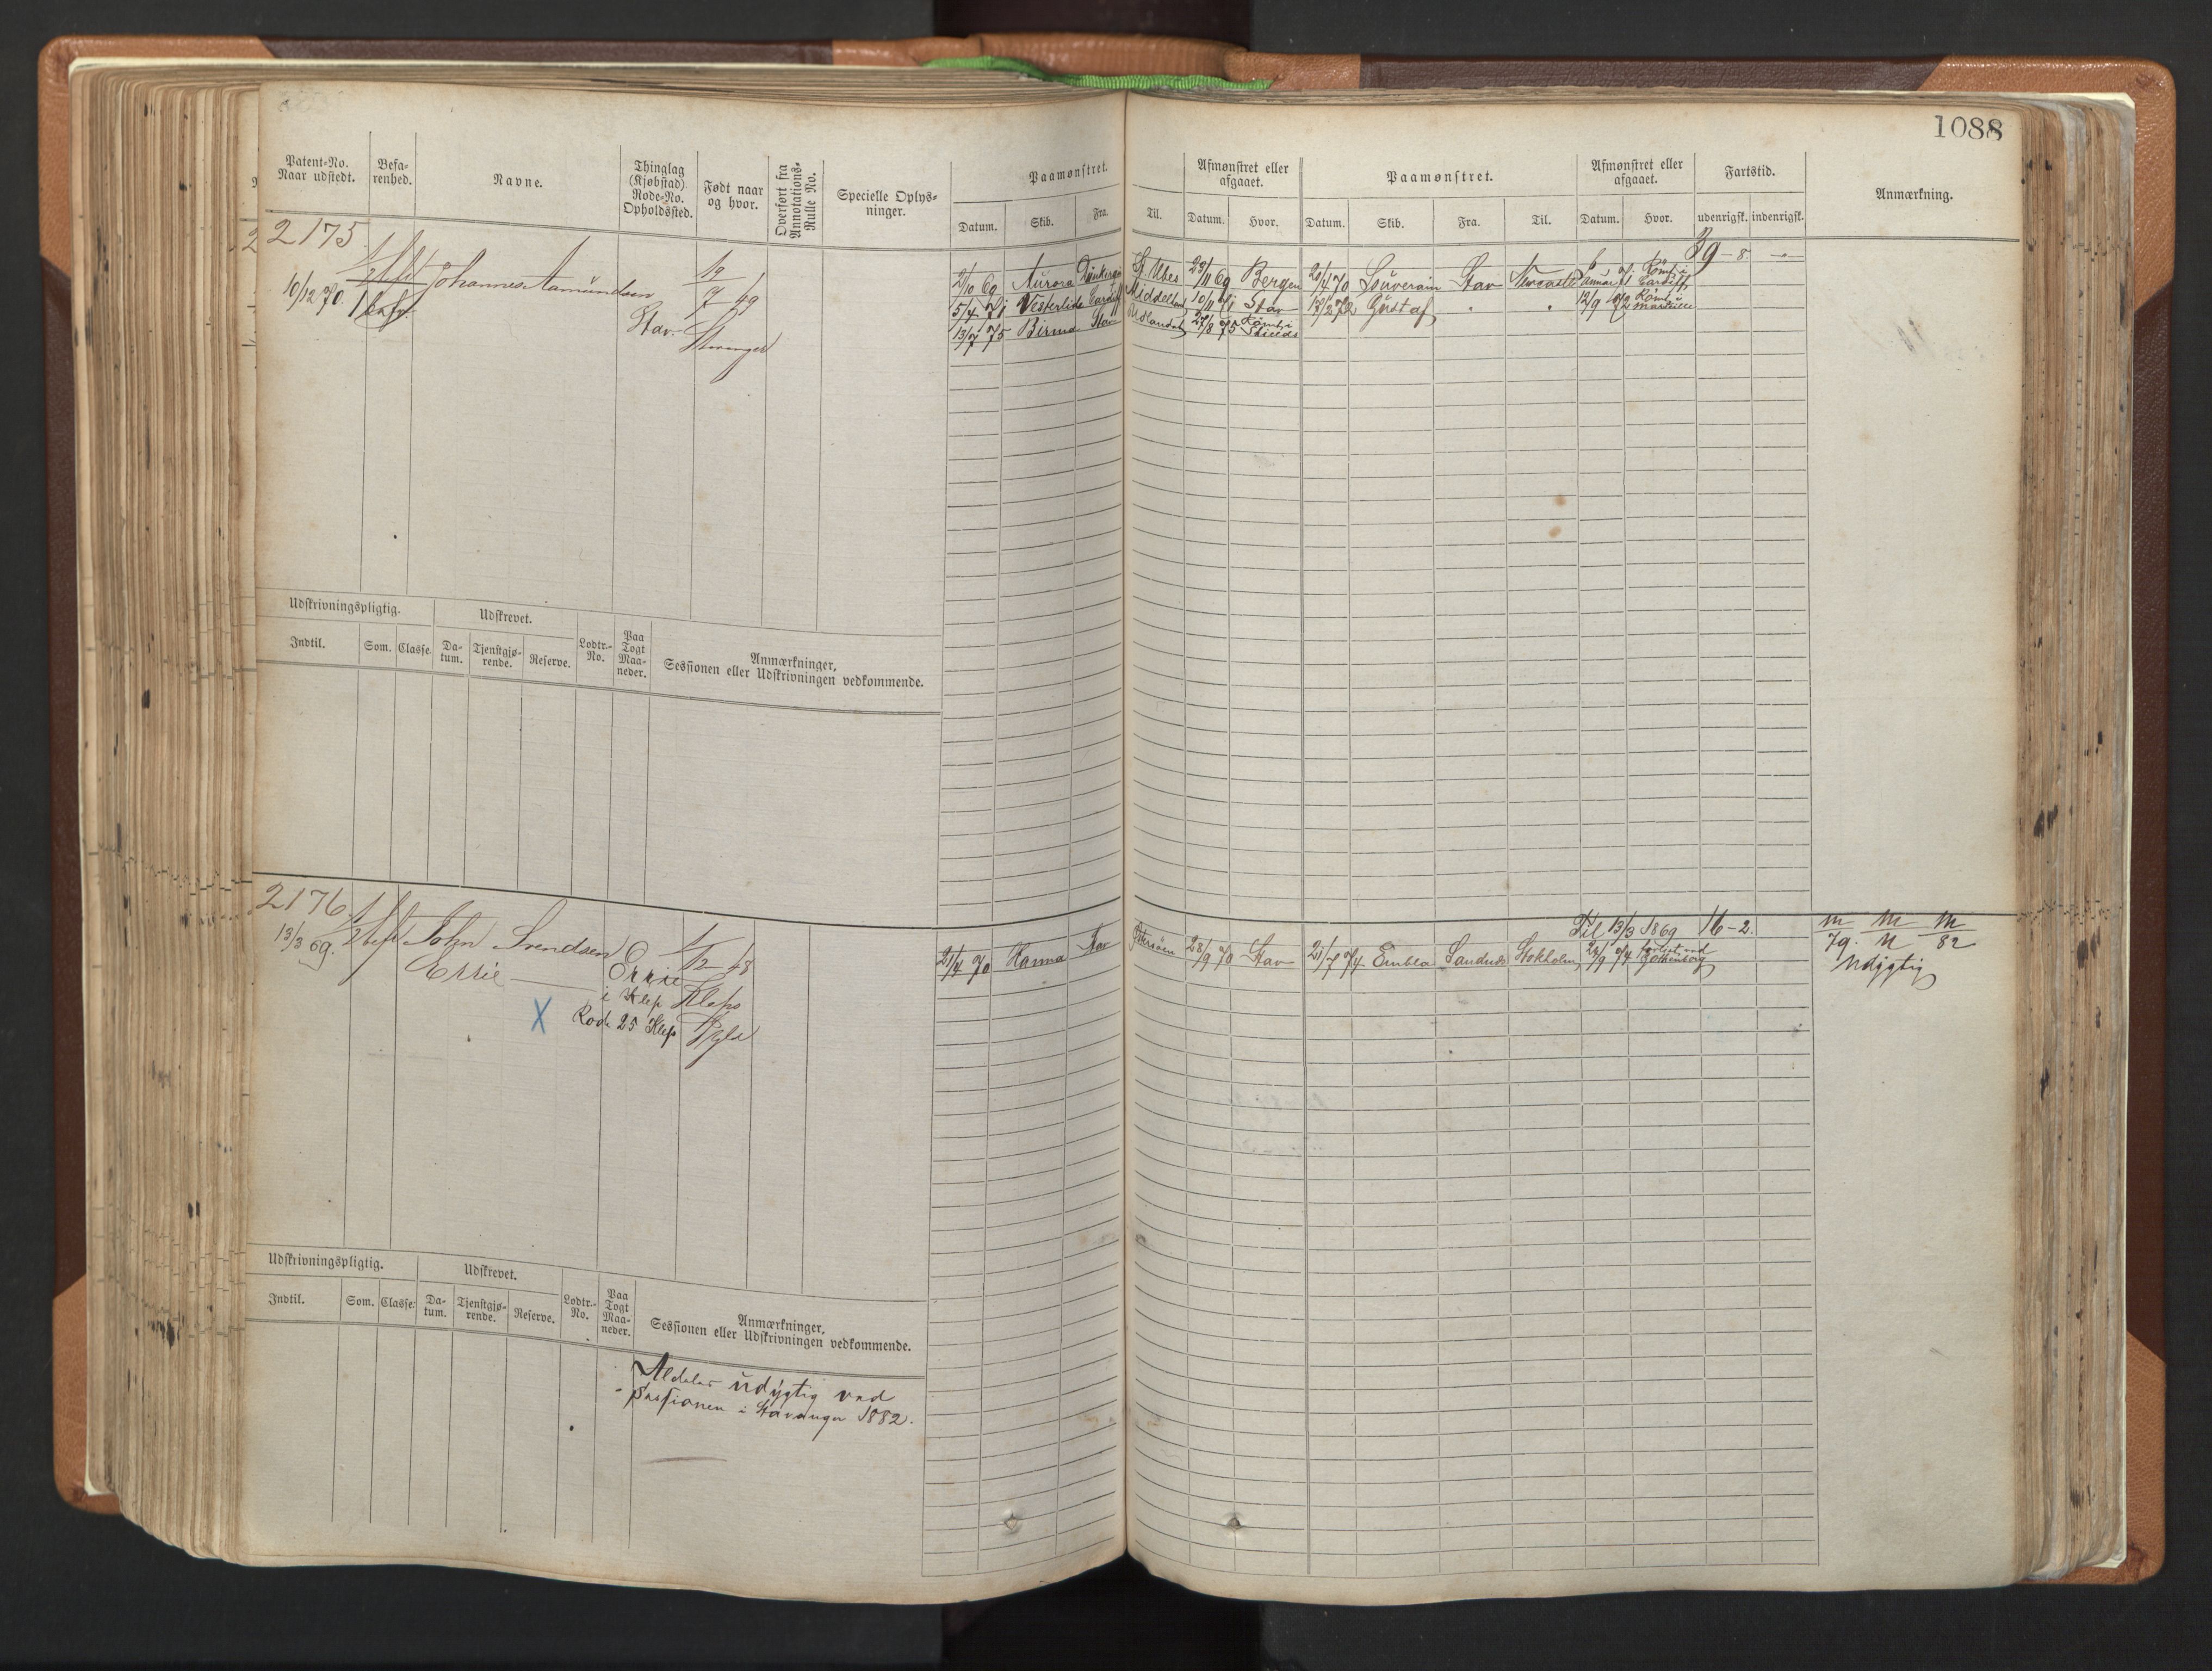 1088
Patent-No. Naar udstedt.
Befarenhed.
Navne.
Thinglag (Kjøbstad) Rode-No. Opholdssted.
Født naar og hvor.
Overført fra Annotations-Rulle No.
Specielle Oplysninger.
Paamønstret.
Datum. Skib. Fra. Til.
Afmønstret eller afgaaet.
Datum. Hvor.
Paamønstret.
Datum. Skib. Fra. Til.
Afmønstret eller afgaaet.
Datum. Hvor.
Fartstid.
udenrigsk. indenrigsk.
Anmærkning.
2175
10/12 70.
Johannes Aamundsen
Stav.
12/7 49
Stavanger
39-8
2/10 69 Aurora
St. Ubes 23/11 69 Bergen
20/4 70 Souverain Stav Newcastle
Cardiff
5/4 71 Vesterlide Cardiff
10/11 71 Stav
13/2 72 Gustaf " "
12/9 72
13/7 75 Birma Stav
Udlandet 27/8 75 Rømt i Shields
Udskrivningspligtig.
Udskrevet.
Indtil. Som. Classe. Datum. Tjenstgjørende. Reserve. Lodtr.-No. Paa Togt Maaneder.
Anmærkninger,
Sessionen eller Udskrivningen vedkommende.
2176
13/3 69.
John Svendsen
Errie
Errie
i Klep
Rode 25 Klep
1/12 48
Klep
Til 13/3 1869 16-2.
21/4 70 Hanna Stav
28/9 70 Stav
21/7 74 Embla Sandnes Stokholm
22/9 74 forlist ved Gothenborg
79. 82
Udygtig
X
Udskrivningspligtig.
Udskrevet.
Indtil. Som. Classe: Datum. Tjenstgjørende. Reserve. Lodtr.-No. Paa Togt Maaneder.
Anmærkninger,
Sessionen eller Udskrivningen vedkommende.
Aldeles udygtig ved
Sessionen i Stavanger 1882.